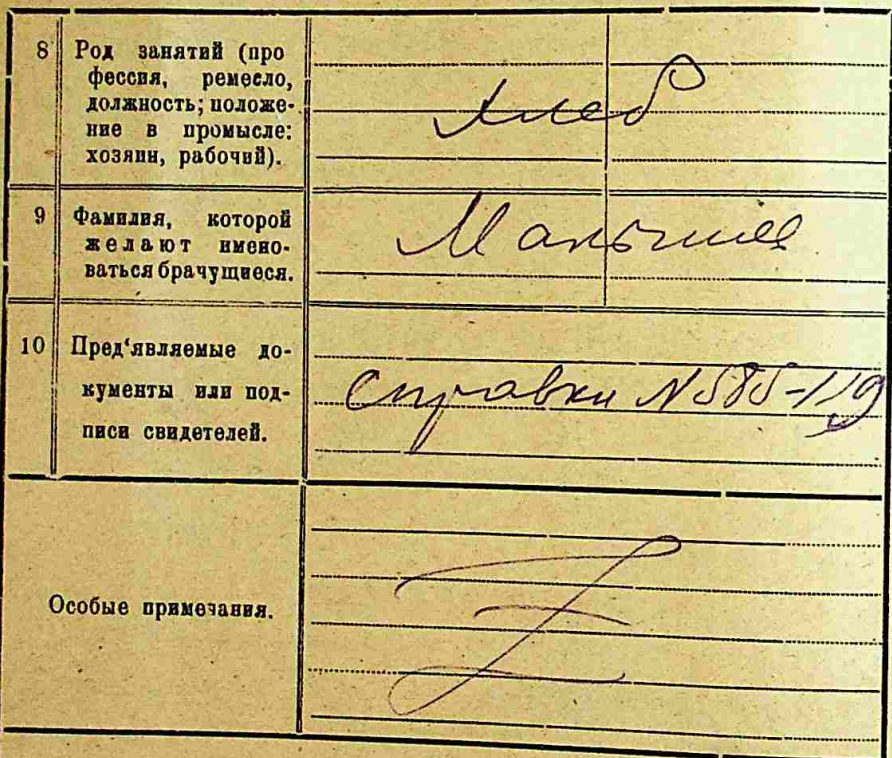 8 Род занятий (про
фессия, ремесло,
должность; положе-
ние в промысле:
хозяин, рабочий).
хлеб
9 Фамилия, которой
желают имено-
ваться брачущиеся.
10 Пред'являемые до-
кументы или под-
писи свидетелей.
справки N 585-119
Особые примечания.
Z